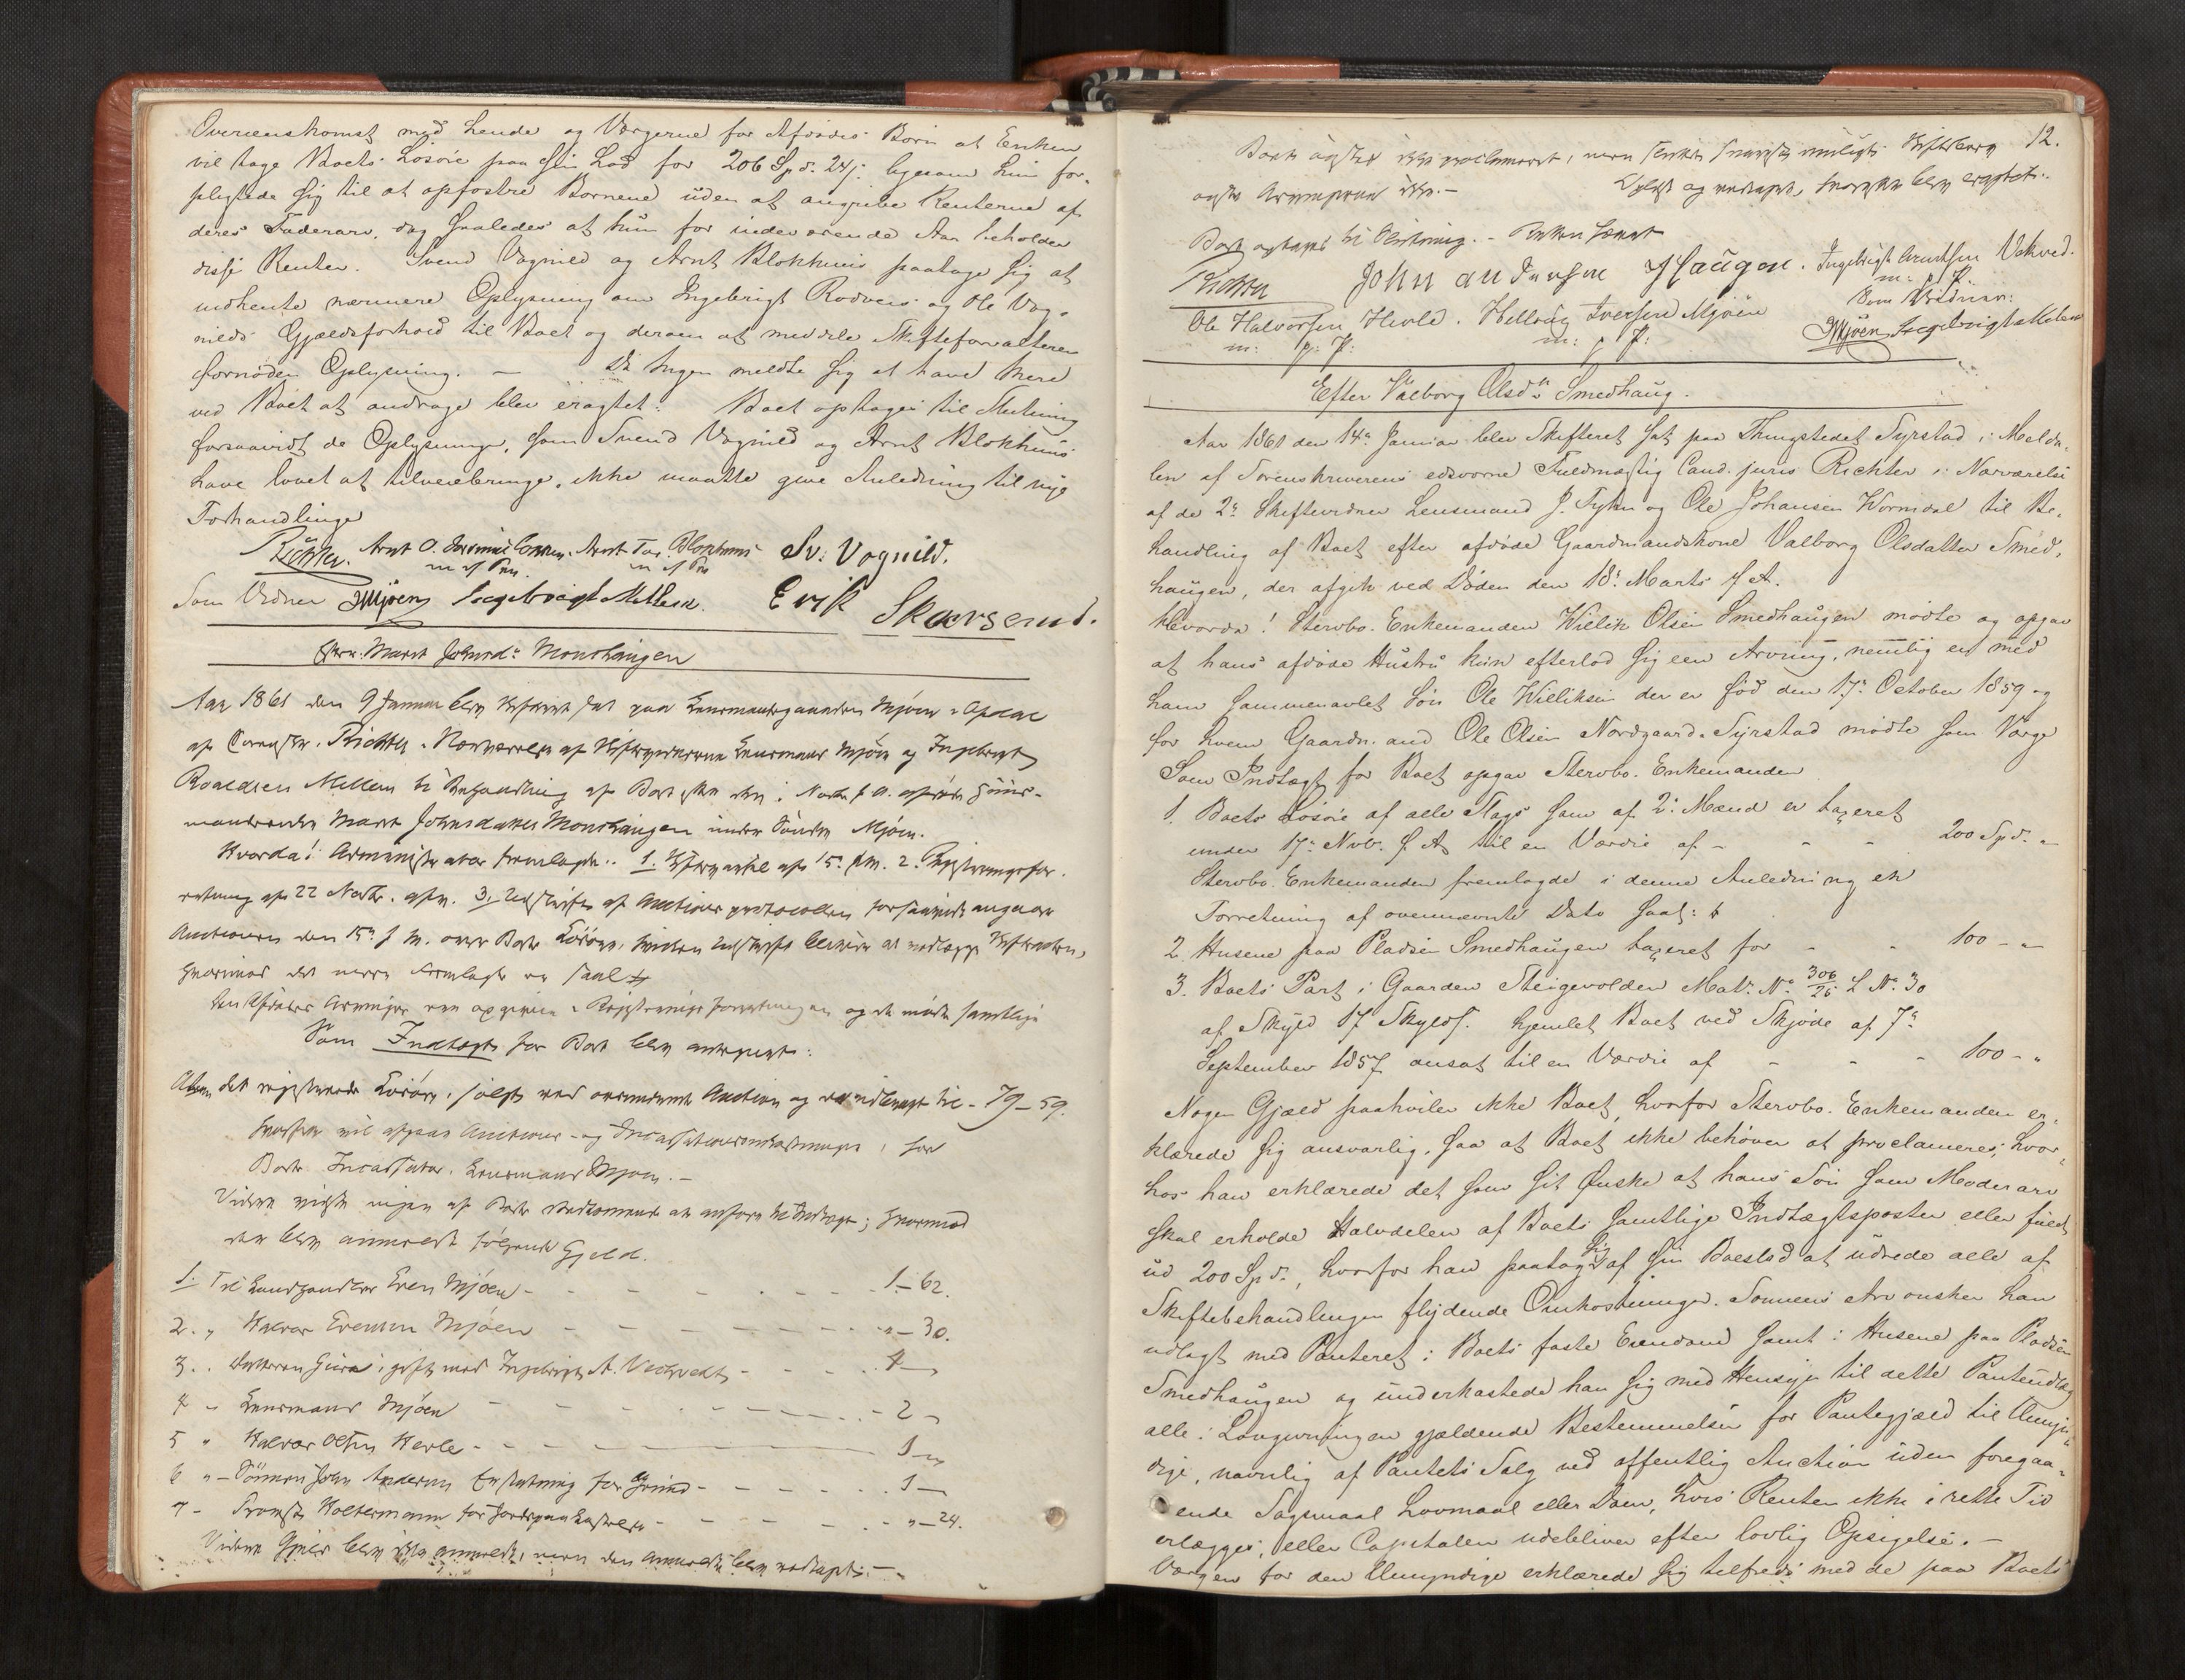 Overeenskomst med hende og Værgerne for Afdødes Børn at Enken
vil tage Boets Løsøre paa sin Lod for 206 Spd. 24 s. ligesom hun for-
pligtede sig til at opfostre Børnene uden at angribe Renterne af
deres Fædrearv, dog saaledes at hun for indeværende Aar beholder
disse Renter. Svend Vognild og Arnt Blokhuus paatage sig at
indhente nærmere Oplysning om Ingebrigt Rodvens og Ole Vog-
nilds Gjældsforhold til Boet og derom at meddele Skifteforvalteren
fornøden Oplysning. — Da Ingen meldte sig at have mere
ved Boet at andrage blev eragtet: Boet optages til Slutning
forsaavidt de Oplysninger, som Svend Vognild og Arnt Blokhuus
have lovet at tilveiebringe, ikke maatte give Anledning til nye
Forhandlinger
Richter. Arnt O. Arnt Tor. Blokhuus Sv: Vognild.
m of Pen m of Pen
Som Vidner Mjøen Ingebrigt Mellem. Erik Skarsemd.
Efter Marit Johnsd: Monshaugen
Aar 1861 den 9 Januar blev Skifteret sat paa Lensmandsgaarden Mjøen i Opdal
af Richter i Nærværelse af Skiftevidnerne Lensmand Mjøen og Ingebrigt
Roaldsen Mellem til Behandling af Boet efter den i Novbr f. A. afdøde Huus-
mandsenke Marit Johnsdatter Monshaugen under Søndre Mjøen.
Hvorda! Administrator fremlagde: 1. af 15. f.M. 2. Registreringsfor-
retning af 22 Novbr. 3, Udskrift af Auctions protocollen forsaavidt angaar
Auctionen den 15de f. M. over Boets Løsøre, hvilken Udskrift bliver at vedlægge
hvorimod det mere Fremlagte er saal:
Den Afdødes Arvinger ere opgivne i Registreringsforretningen og de mødte samtlige
Som Indtægt for Boet blev antegnet:
det registrerede Løsøre, solgt ved ovennævnte Auction og er udbragt til - 79 - 59.
hvorfra vil afgaa Auctions- og , for
Boets Incassator, Lensmand Mjøen. -
Videre vidste ingen af Boets Vedkommende at anføre til Indtægt; hvorimod
der blev anmeldt følgende Gjeld.
1. Til Landhandler Even Mjøen - - - - - 1 - 62.
2. " Halvor Evensen Mjøen - - - - - " - 30.
3. " Datteren Guro, gift med Ingebrigt A. Vechvedt - - - - 4 -
4 " Lensmand Mjøen - - - - - 2 -
5 " Halvor Olsen Herle - - - - - 1 - "
6 " - Sønnen John Andersen Erstatning for - - - - - 1 -
7 - Provst Woltermann for Jordpaakastelse - - - - - " - 24.
Videre Gjæld blev ikke anmeldt, men den anmeldte blev vedtaget. -
12.
Boet agtes ikke proclameret, men
Oplæst og vedtaget, hvorefter blev eragtet:
Boet optages til Slutning. - Retten hævet
Richter John andersen Haugen. Ingebrigt Arntsen Vekved.
m: p: P:
Ole Halvorsen Hevle. Hellvig Iversen Mjøen Som Vidner:
m: p: P: m: p P: Mjøen Ingebrigt Mellem
Efter Valborg Olsdtr Smedhaug.
Aar 1861 den 14de Januar blev Skifteret sat paa Thingstedet Syrstad i Melda-
len af Sorenskriverens edsvorne Fuldmægtig Cand. juris Richter i Nærværelse
af de 2de Skiftevidner Lensmand J. Syhn og Ole Johansen Wormdal til Be-
handling af Boet efter afdøde Gaardmandskone Valborg Olsdatter Smed-
haugen, der afgik ved Døden den 18de Marts f. A.
Hvorda! Stervbo-Enkemanden Willik Olsen Smedhaugen mødte og opgav
at hans afdøde Hustru kun efterlod sig een Arving, nemlig en med
ham sammenavlet Søn Ole Williksen der er født den 17de October 1859 og
for hvem Gaardmand Ole Olsen Nordgaard-Syrstad mødte som Værge
Som Indtægt for Boet opgav Stervbo-Enkemanden
1. Boets Løsøre af alle Slags som af 2de Mænd er taxeret
under 17de Novb. f. A. til en Værdie af - - - 200 Spd. "
Stervbo-Enkemanden fremlagde i denne Anledning en
Forretning af ovennævnte Dato saal:
2. Husene paa Pladsen Smedhaugen taxeret for - - 100 - "
3. Boets Part i Gaarden Steigevolden Matr. No 306/25 L No 30
af Skyld 17 Skylds. hjemlet Boet ved Skjøde af 7de
September 1857 ansat til en Værdie af - - - 100 - "
Nogen Gjæld paahviler ikke Boet, hvorfor Stervbo-Enkemanden er-
klærede sig ansvarlig, saa at Boet ikke behøver at proclameres, hvor-
hos han erklærede det som sit Ønske at hans Søn som Mødrearv
skal erholde Halvdelen af Boets samtlige Indtægtsposter eller fuldt
ud 200 Spd., hvorfor han paatog sig af sin Boeslod at udrede alle af
Skiftebehandlingen flydende Omkostninger. Sønnens Arv ønsker han
udlagt med Panteret i Boets faste Eiendom samt i Husene paa Pladsen
Smedhaugen og underkastede han sig med Hensyn til dette Panteudlæg
alle i Lovgivningen gjældende Bestemmelser for Pantegjæld til Umyn-
dige, navnlig af Pantets Salg ved offentlig Auction uden foregaa-
ende Søgsmaal Lovmaal eller Dom, hvis Renten ikke i rette Tid
erlægges, eller Capitalen udebliver efter lovlig Opsigelse. -
Værgen for den Umyndige erklærede sig tilfreds med de paa Boets